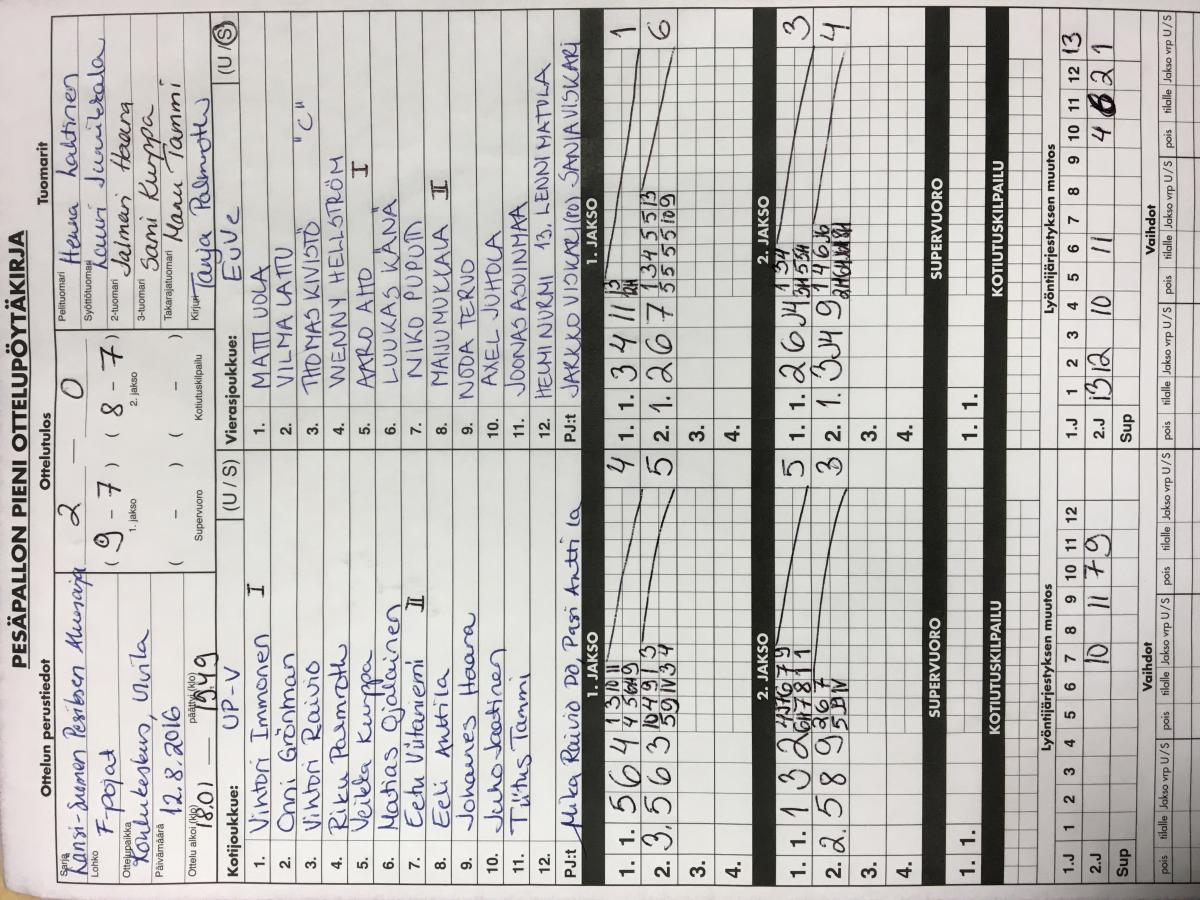 PESÄPALLON PIENI OTTELUPÖYTÄKIRJA
Ottelun perustiedot
Ottelutulos
Tuomarit
Sarja
Länsi-Suomen Pesiksen Aluesarja
Lohko
F-pojat
Ottelupaikka
Koulukeskus, Ulvila
Päivämäärä
12.8.2016
Ottelu alkoi (klo)
18.01
päättyi (klo)
19.49
2 — 0
( 9 - 7 ) ( 8 - 7 )
1. jakso
2. jakso
( - ) ( - )
Supervuoro
Kotiutuskilpailu
Pelituomari Henna Lahtinen
Syöttötuomari Lauri
2-tuomari Jalmari Haara
3-tuomari Sami Kurppa
Takarajatuomari Manu Tammi
Kirjuri Tanja Palmroth
Kotijoukkue: UP-V (U / S)
1. Vihtori Immonen I
2. Onni Grönman
3. Vihtori Raivio
4. Riku Palmroth
5. Veikka Kurppa
6. Matias Ojalainen
7. Eetu Viitaniemi II
8. Eeli Anttila
9. Johannes Haara
10. Juho Jaatinen
11. Tiitus Tammi
12.
PJ:t Mika Raivio PO, Pasi Antti la
Vierasjoukkue: EuVe (U / S)
1. MATTI UOLA
2. VILMA LATU
3. THOMAS KIVISTÖ "C"
4. WENNY HELLSTRÖM
5. AARO AHO I
6. LUUKAS KÄNÄ
7. NIKO PUPUTI
8. MAIJU MUKKALA II
9. NOOA TERVO
10. AXEL JUHOLA
11. JOONAS ASUINMAA
12. HELMI NURMI 13. LENNI MATULA
PJ:t JAKKO VISKARI (PO) SANJA VISKARI
1. JAKSO
1. 1. 5 6 4 4
2. 3. 5 6 3 5
3.
4.
1. JAKSO
1. 1. 3 4 11 1
2. 1. 2 6 7 6
3.
4.
2. JAKSO
1. 1. 1 3 2 5
2. 2. 5 8 9 3
3.
4.
2. JAKSO
1. 1. 2 6 3
2. 1. 3 4
3.
4.
SUPERVUORO
1. 1.
SUPERVUORO
1. 1.
KOTIUTUSKILPAILU
KOTIUTUSKILPAILU
Lyöntijärjestyksen muutos
1.J 1 2 3 4 5 6 7 8 9 10 11 12
2.J 10 11 7 9
Sup
Lyöntijärjestyksen muutos
1.J 1 2 3 4 5 6 7 8 9 10 11 12 13
2.J 13 12 10 11 4 2 1
Sup
Vaihdot
pois tilalle Jakso vrp U / S pois tilalle Jakso vrp U / S pois tilalle Jakso vrp U / S
Vaihdot
pois tilalle Jakso vrp U / S pois tilalle Jakso vrp U / S pois tilalle Jakso vrp U / S